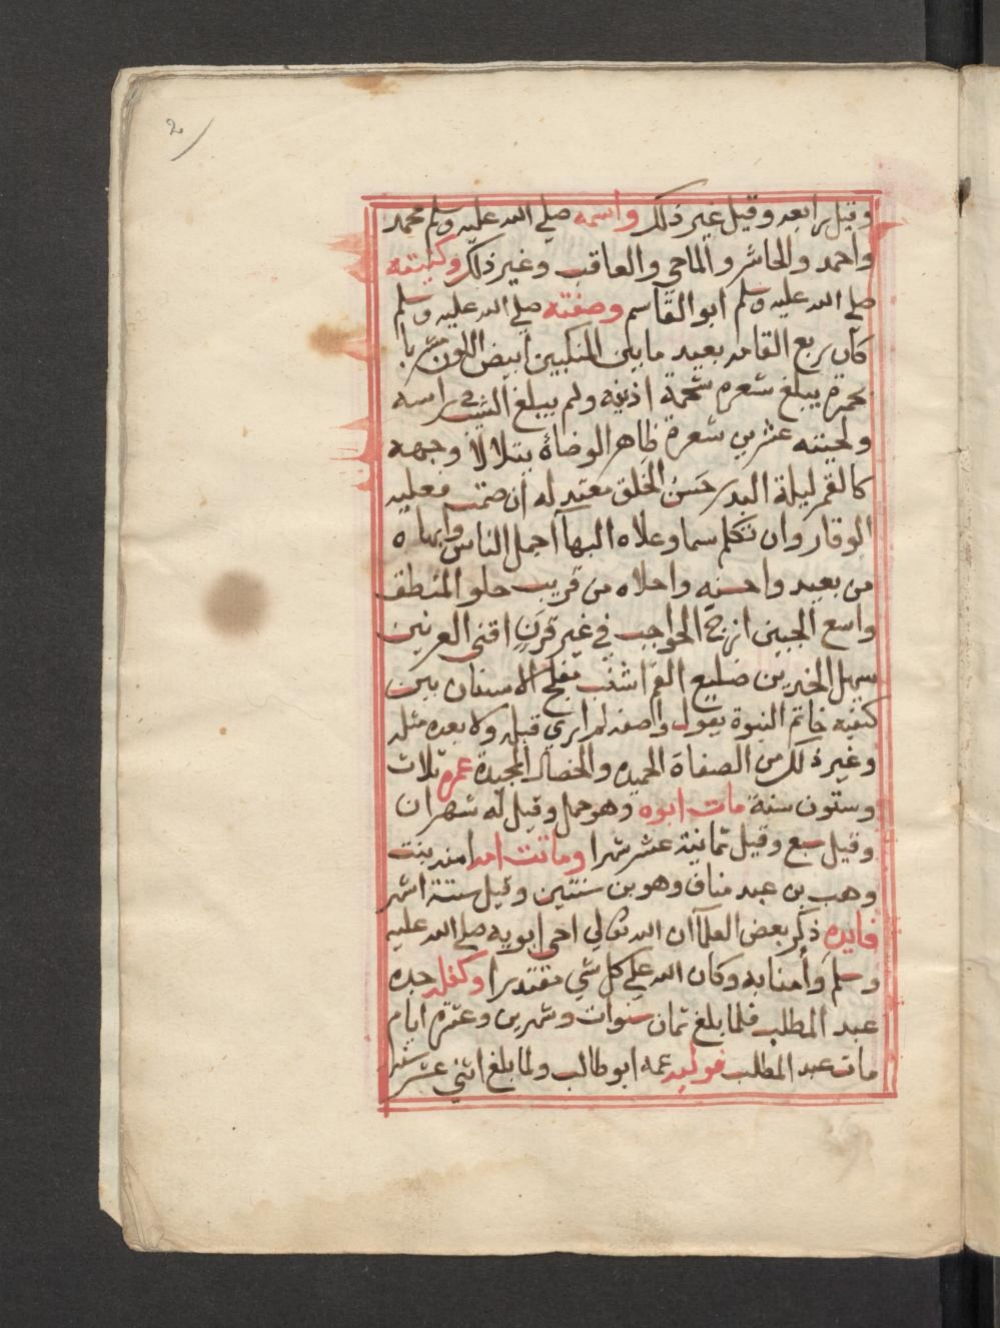 2
وقيل رابعه وقيل غير ذلك واسمه صلي الله عليه وسلم محمد
واحمد والحاشر والماحي والعاقب وغير ذلك وكنيته
صلي الله عليه وسلم ابو القاسم وصفته صلي الله عليه وسلم
كان ربع القامه بعيد ما بين المنكبين ابيض اللون مشربا
بحمرة يبلغ شعره شحمة اذنيه ولم يبلغ الشيب في راسه
ولحيته عشرين شعرة ظاهر الوضاة يتلالا وجهه
كالقمر ليلة البدر حسن الخلق معتدله ان صمت فعليه
الوقار وان تكلم سما وعلاه البها اجمل الناس وابهاه
من بعيد واحسنه واحلاه من قريب حلو المنطق
واسع الجبين ازج الحواجب في غير قرن اقني العرنين
سهل الخدين ضليع الفم اشنب مفلج الاسنان بين
كتفيه خاتم النبوة يقول واصفه لم اري قبله ولا بعده مثله
وغير ذلك من الصفاة الحميده والخصال المجيدة عمره ثلاث
وستون سنة مات ابوه وهو حمل وقيل له شهران
وقيل سبع وقيل ثمانية عشر شهرا وماتت امه امنه بنت
وهب بن عبد مناف وهو بن سنتين وقيل ستة اشهر
فايده ذكر بعض العلما ان الله تعالي احي ابويه صلي الله عليه
وسلم وأمنا به وكان الله علي كل شي مقتدرا وكفله جده
عبد المطلب فلما بلغ ثمان سنوات وشهرين وعشرة ايام
مات عبد المطلب فوليه عمه ابو طالب ولما بلغ اثني عشر سنه